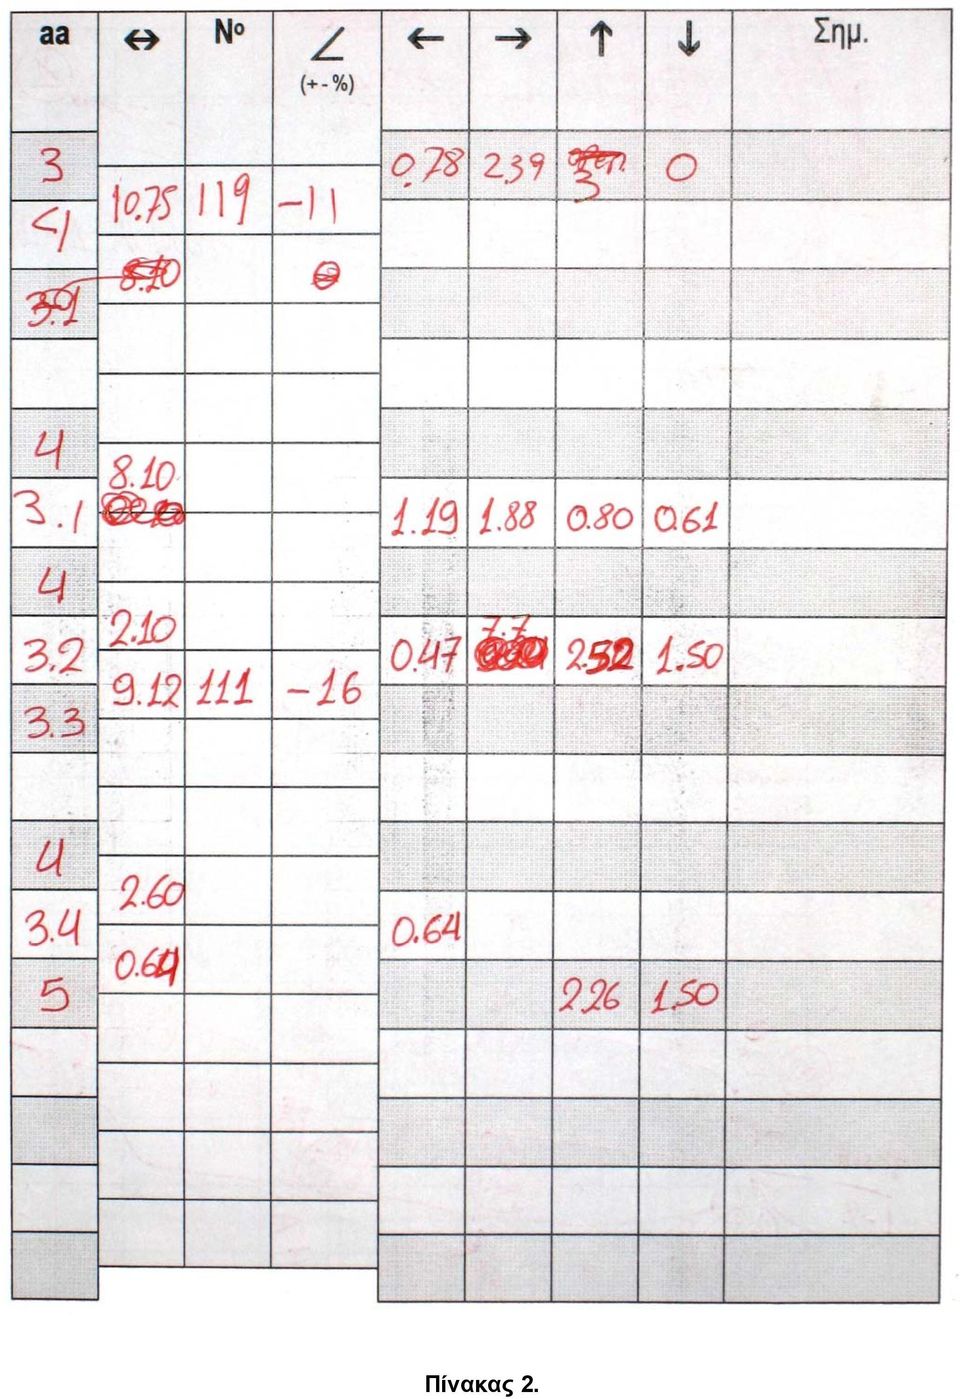 aa ↔ Nº ∠ ← → ↑ ↓ Σημ.
(+ - %)
3 0.78 2.39 3 0
10.75 119 -11
<1
8.10
3.1
4
8.10
3.1 1.19 1.88 0.80 0.61
4
2.10
3.2 0.47 7.7 2.52 1.50
9.12 111 -16
3.3
4
2.60
3.4 0.64
0.64
5 2.26 1.50
Πίνακας 2.